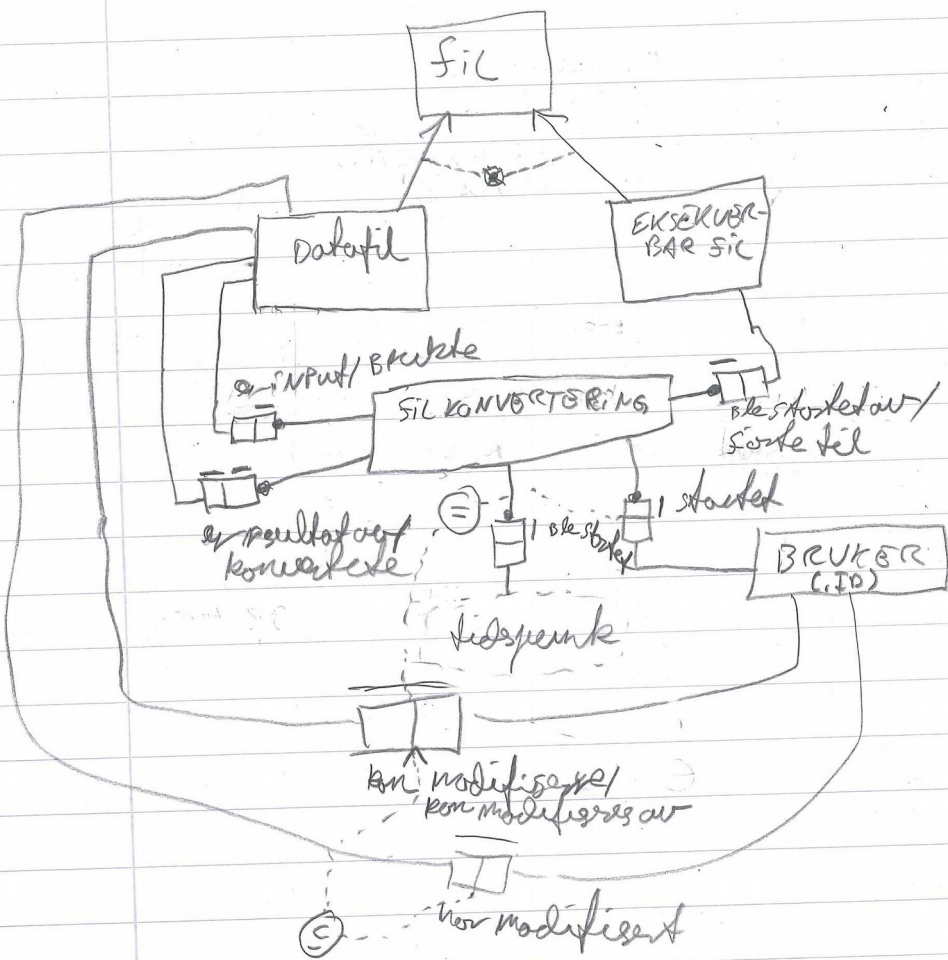 fil
Datafil
EKSEKVER-
BAR fil
INPUT/Brukte
FILKONVERTERING
Ble startet av/
førte til
er resultat av/
konverterte
=
1 Ble startet
1 startet
BRUKER
(.ID)
tidspunk
kan modifisere/
kan modifiseres av
har modifisert